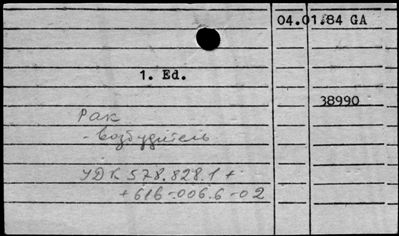 04.01.84 GA
1. Ed.
38990
Рак
- возбудитель
УДК 578.828.1 +
+ 616-006.6-02